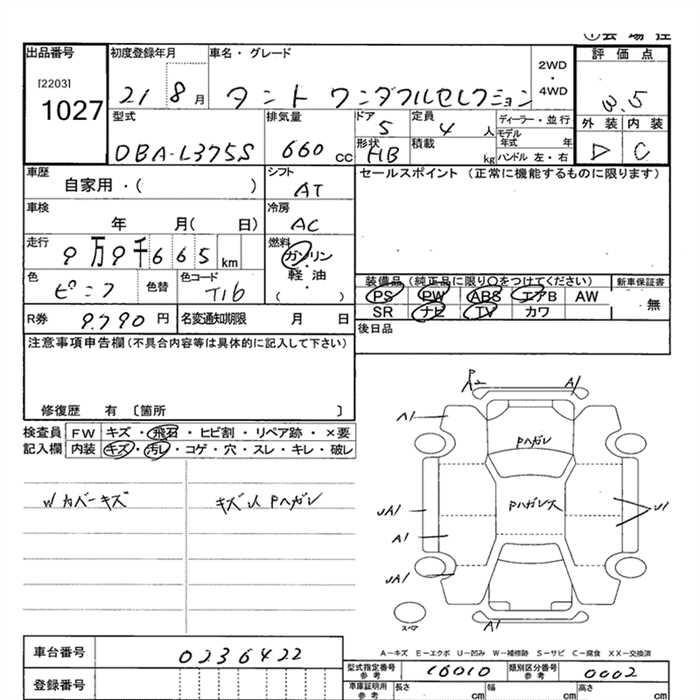 出品番号
[2203]
1027
初度登録年月
21 8 月
車名・グレード
タント ワンダフルセレクション
2WD
・
4WD
評価点
3.5
外装 内装
D C
型式
DBA-L375S
排気量
660 cc
ドア
5
定員
4 人
形状
HB
積載
kg
ディーラー・並行
モデル
年式 年
ハンドル 左・右
車歴
自家用・( )
シフト
AT
セールスポイント (正常に機能するものに限ります)
車検
年 月( 日)
冷房
AC
走行
9万9千665 km
燃料
ガソリン
軽・油
( )
色
ピンク
色替
色コード
T16
装備品 (純正品に限り○をつけてください)
PS PW ABS エアB AW
SR ナビ TV カワ
新車保証書
無
R券
9,790 円
名変通知期限 月 日
後日品
注意事項申告欄(不具合内容等は具体的に記入して下さい)
修復歴 有 〔箇所 〕
検査員 FW キズ・飛石・ヒビ割・リペア跡・×要
記入欄 内装 キズ・汚レ・コゲ・穴・スレ・キレ・破レ
Wカバーキズ
キズU Pハガレ
A2
A1
A1
Pハガレ
UA1
Pハガレ大
U1
A1
UA1
スペア
A1
A-キズ E-エクボ U-凹み W-補修跡 S-サビ C-腐食 XX-交換済
車台番号
0236422
登録番号
型式指定番号
参考
16010
類別区分番号
参考
0002
車庫証明用
参考
長さ
cm
幅
cm
高さ
cm